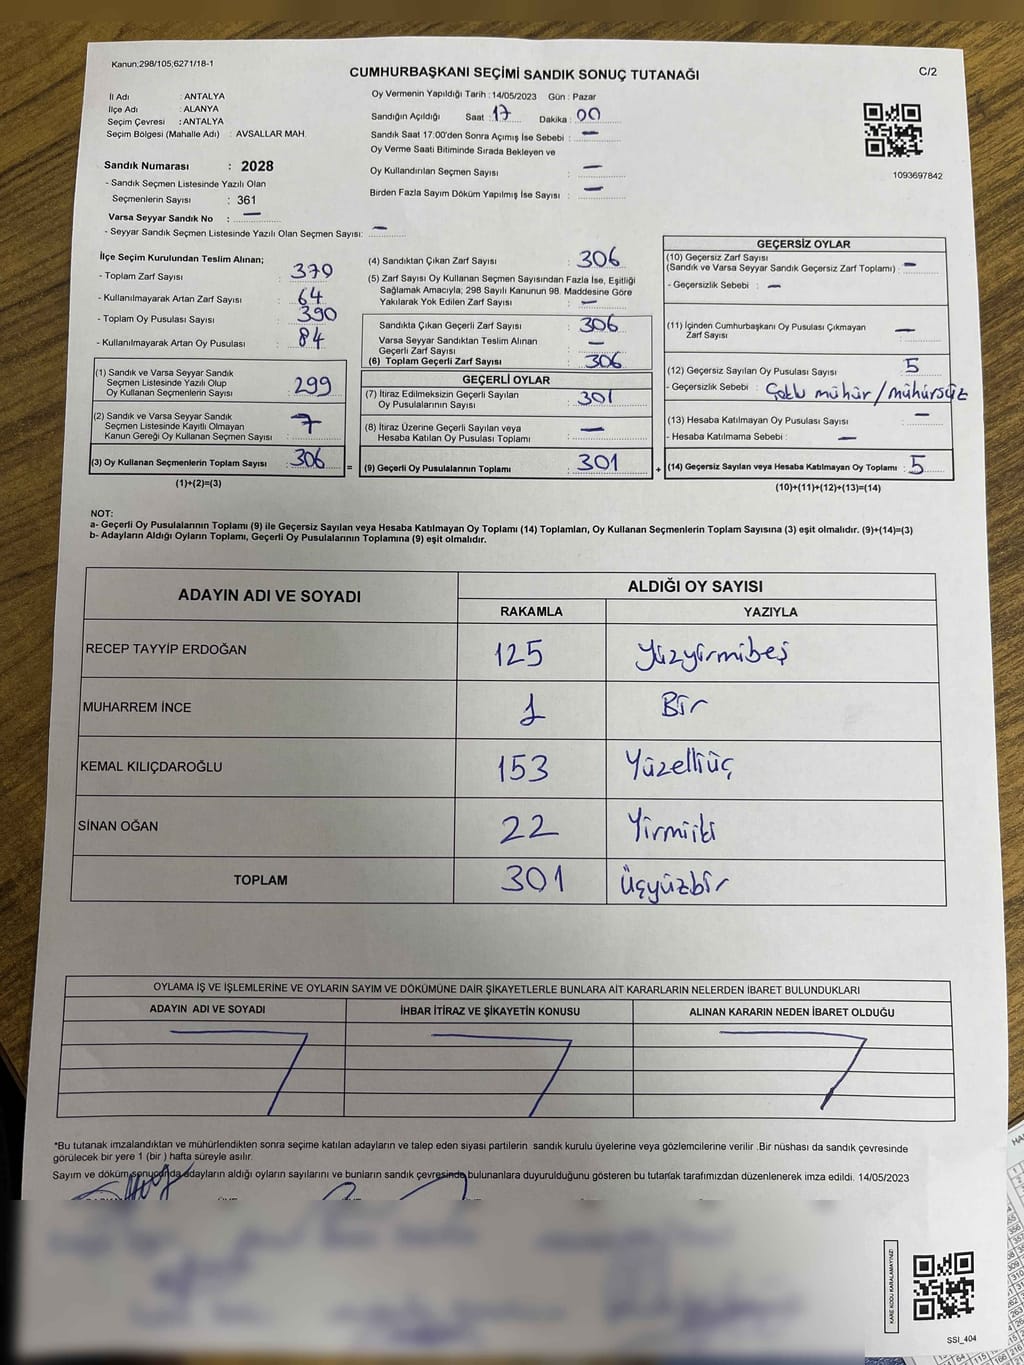 Kanun:298/105;6271/18-1
CUMHURBAŞKANI SEÇİMİ SANDIK SONUÇ TUTANAĞI
C/2
İl Adı : ANTALYA
İlçe Adı : ALANYA
Seçim Çevresi : ANTALYA
Seçim Bölgesi (Mahalle Adı) : AVSALLAR MAH.
Sandık Numarası : 2028
- Sandık Seçmen Listesinde Yazılı Olan
Seçmenlerin Sayısı : 361
Varsa Seyyar Sandık No : —
- Seyyar Sandık Seçmen Listesinde Yazılı Olan Seçmen Sayısı: —
Oy Vermenin Yapıldığı Tarih : 14/05/2023 Gün : Pazar
Sandığın Açıldığı Saat : 17 Dakika : 00
Sandık Saat 17:00'den Sonra Açımış İse Sebebi : —
Oy Verme Saati Bitiminde Sırada Bekleyen ve
Oy Kullandırılan Seçmen Sayısı : —
Birden Fazla Sayım Döküm Yapılmış İse Sayısı : —
1093697842
İlçe Seçim Kurulundan Teslim Alınan;
- Toplam Zarf Sayısı : 370
- Kullanılmayarak Artan Zarf Sayısı : 64
- Toplam Oy Pusulası Sayısı : 390
- Kullanılmayarak Artan Oy Pusulası : 84
(1) Sandık ve Varsa Seyyar Sandık
Seçmen Listesinde Yazılı Olup
Oy Kullanan Seçmenlerin Sayısı : 299
(2) Sandık ve Varsa Seyyar Sandık
Seçmen Listesinde Kayıtlı Olmayan
Kanun Gereği Oy Kullanan Seçmen Sayısı : 7
(3) Oy Kullanan Seçmenlerin Toplam Sayısı : 306
(1)+(2)=(3)
(4) Sandıktan Çıkan Zarf Sayısı : 306
(5) Zarf Sayısı Oy Kullanan Seçmen Sayısından Fazla İse, Eşitliği
Sağlamak Amacıyla; 298 Sayılı Kanunun 98. Maddesine Göre
Yakılarak Yok Edilen Zarf Sayısı : —
Sandıkta Çıkan Geçerli Zarf Sayısı : 306
Varsa Seyyar Sandıktan Teslim Alınan
Geçerli Zarf Sayısı : —
(6) Toplam Geçerli Zarf Sayısı : 306
GEÇERLİ OYLAR
(7) İtiraz Edilmeksizin Geçerli Sayılan
Oy Pusulalarının Sayısı : 301
(8) İtiraz Üzerine Geçerli Sayılan veya
Hesaba Katılan Oy Pusulası Toplamı : —
= (9) Geçerli Oy Pusulalarının Toplamı : 301
GEÇERSİZ OYLAR
(10) Geçersiz Zarf Sayısı
(Sandık ve Varsa Seyyar Sandık Geçersiz Zarf Toplamı) : —
- Geçersizlik Sebebi : —
(11) İçinden Cumhurbaşkanı Oy Pusulası Çıkmayan
Zarf Sayısı : —
(12) Geçersiz Sayılan Oy Pusulası Sayısı : 5
- Geçersizlik Sebebi : Çoklu mühür / mühürsüz
(13) Hesaba Katılmayan Oy Pusulası Sayısı : —
- Hesaba Katılmama Sebebi : —
+ (14) Geçersiz Sayılan veya Hesaba Katılmayan Oy Toplamı : 5
(10)+(11)+(12)+(13)=(14)
NOT:
a- Geçerli Oy Pusulalarının Toplamı (9) ile Geçersiz Sayılan veya Hesaba Katılmayan Oy Toplamı (14) Toplamları, Oy Kullanan Seçmenlerin Toplam Sayısına (3) eşit olmalıdır. (9)+(14)=(3)
b- Adayların Aldığı Oyların Toplamı, Geçerli Oy Pusulalarının Toplamına (9) eşit olmalıdır.
ADAYIN ADI VE SOYADI
ALDIĞI OY SAYISI
RAKAMLA YAZIYLA
RECEP TAYYİP ERDOĞAN 125 Yüzyirmibeş
MUHARREM İNCE 1 Bir
KEMAL KILIÇDAROĞLU 153 Yüzelliüç
SİNAN OĞAN 22 Yirmiiki
TOPLAM 301 Üçyüzbir
OYLAMA İŞ VE İŞLEMLERİNE VE OYLARIN SAYIM VE DÖKÜMÜNE DAİR ŞİKAYETLERLE BUNLARA AİT KARARLARIN NELERDEN İBARET BULUNDUKLARI
ADAYIN ADI VE SOYADI İHBAR İTİRAZ VE ŞİKAYETİN KONUSU ALINAN KARARIN NEDEN İBARET OLDUĞU
*Bu tutanak imzalandıktan ve mühürlendikten sonra seçime katılan adayların ve talep eden siyasi partilerin sandık kurulu üyelerine veya gözlemcilerine verilir .Bir nüshası da sandık çevresinde
görülecek bir yere 1 (bir ) hafta süreyle asılır.
Sayım ve döküm sonucunda adayların aldığı oyların sayılarını ve bunların sandık çevresinde bulunanlara duyurulduğunu gösteren bu tutanak tarafımızdan düzenlenerek imza edildi. 14/05/2023
KARE KODU KARALAMAYINIZ!
SSI_404